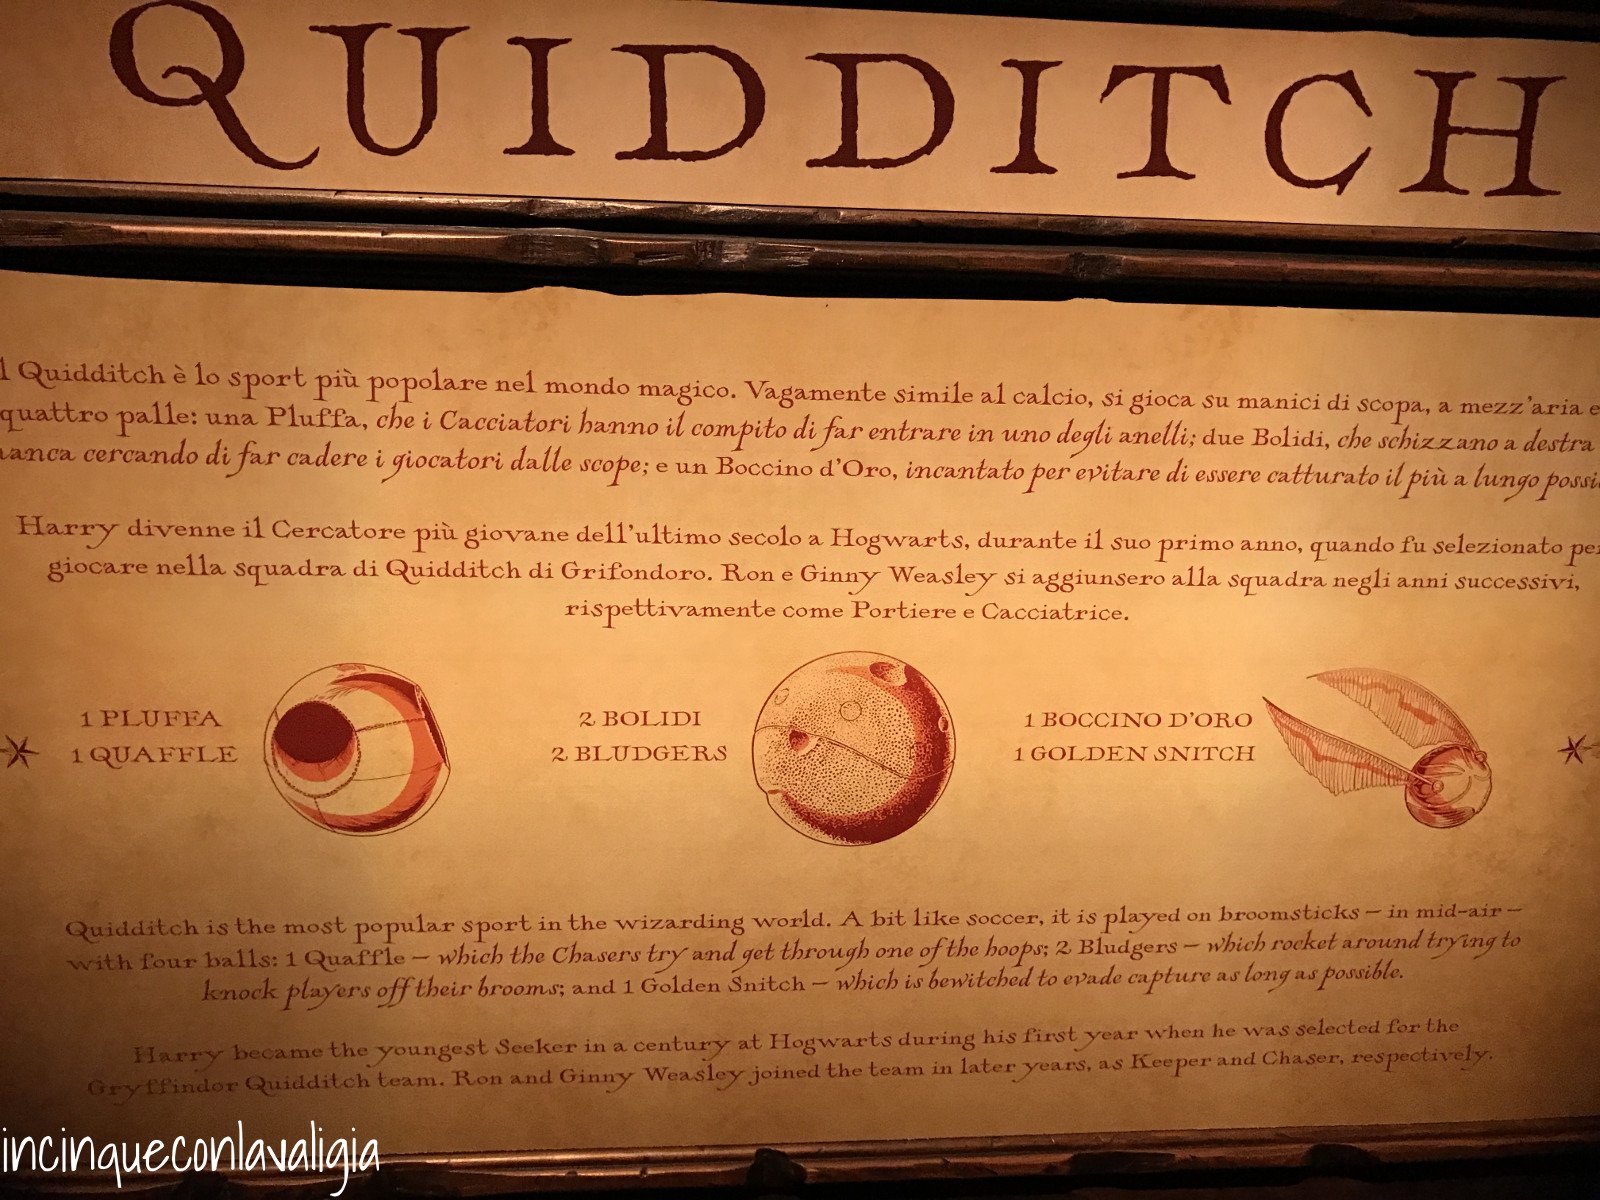 QUIDDITCH
l Quidditch è lo sport più popolare nel mondo magico. Vagamente simile al calcio, si gioca su manici di scopa, a mezz'aria e
quattro palle: una Pluffa, che i Cacciatori hanno il compito di far entrare in uno degli anelli; due Bolidi, che schizzano a destra
anca cercando di far cadere i giocatori dalle scope; e un Boccino d'Oro, incantato per evitare di essere catturato il più a lungo possi
Harry divenne il Cercatore più giovane dell'ultimo secolo a Hogwarts, durante il suo primo anno, quando fu selezionato per
giocare nella squadra di Quidditch di Grifondoro. Ron e Ginny Weasley si aggiunsero alla squadra negli anni successivi,
rispettivamente come Portiere e Cacciatrice.
1 PLUFFA
1 QUAFFLE
2 BOLIDI
2 BLUDGERS
1 BOCCINO D'ORO
1 GOLDEN SNITCH
Quidditch is the most popular sport in the wizarding world. A bit like soccer, it is played on broomsticks – in mid-air –
with four balls: 1 Quaffle – which the Chasers try and get through one of the hoops; 2 Bludgers – which rocket around trying to
knock players off their brooms; and 1 Golden Snitch – which is bewitched to evade capture as long as possible.
Harry became the youngest Seeker in a century at Hogwarts during his first year when he was selected for the
Gryffindor Quidditch team. Ron and Ginny Weasley joined the team in later years, as Keeper and Chaser, respectively.
incinqueconlavaligia